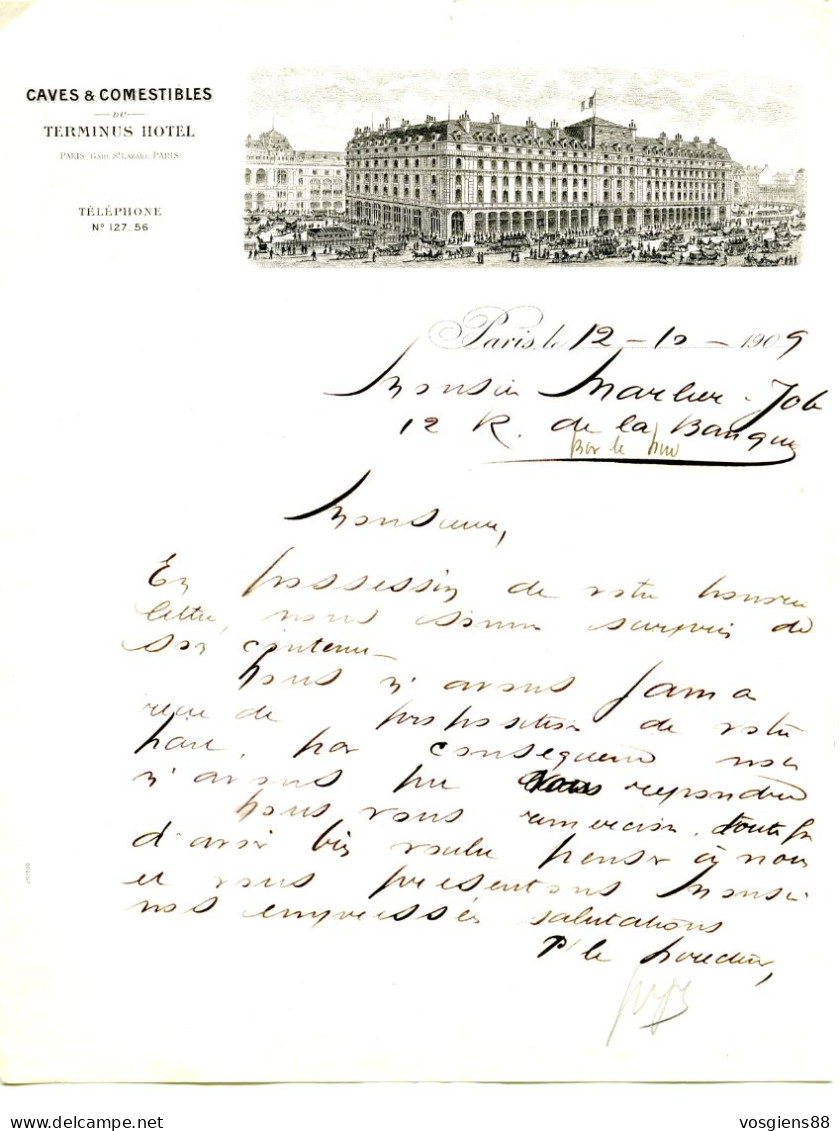 CAVES & COMESTIBLES
DU
TERMINUS HOTEL
PARIS, GARE ST LAZARE, PARIS
TÉLÉPHONE
No 127.56
Paris, le 12 - 10 - 1909
Monsieur Marlier-Job
12 R. de la Banque
Bar le Duc
Monsieur,
En possession de votre honorée
lettre, nous sommes surpris de
son contenu -
Nous n'avons jamais
reçu de proposition de votre
part, par conséquent nous
n'avons pu vous repondre
Nous vous remercions toutefois
d'avoir bien voulu penser à nous
et vous présentons Monsieur
nos empressées salutations
Pr le
vosgiens88